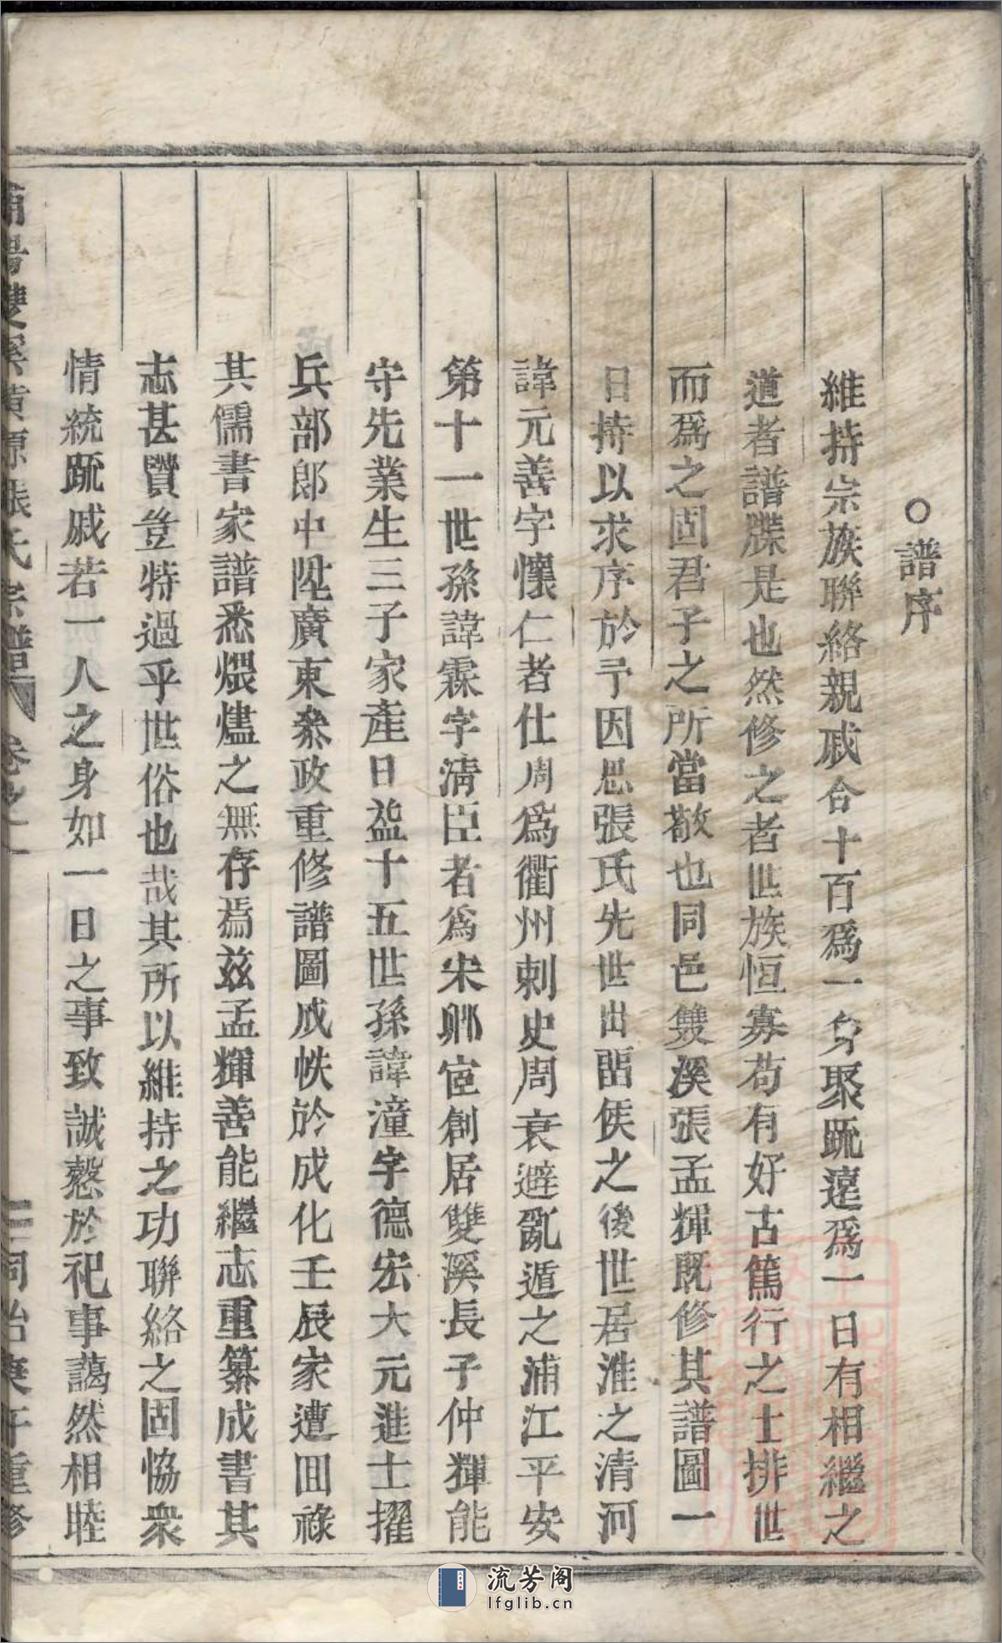 ○譜序
維持宗族聯絡親戚合十百爲一身聚䟽遠爲一日有相繼之
道者譜牒是也然修之者世族恒寡苟有好古篤行之士排世
而爲之固君子之所當敬也同邑雙溪張孟輝既修其譜圖一
日持以求序於予因思張氏先世出畱侯之後世居淮之清河
諱元善字懷仁者仕周爲衢州刺史周衰避亂遁之浦江平安
第十一世孫諱霖字淸臣者爲宋郷宦創居雙溪長子仲輝能
守先業生三子家產日盈十五世孫諱潼字德宏大元進士擢
兵部郎中陞廣東叅政重修譜圖成帙於成化壬辰家遭回祿
其儒書家譜悉煨燼之無存焉兹孟輝善能繼志重纂成書其
志甚贒豈特過乎世俗也哉其所以維持之功聯絡之固恊衆
情統䟽戚若一人之身如一日之事致誠慤於祀事藹然相睦
浦陽雙溪黃源張氏宗譜 卷之一 二 同治庚午重修
流芳阁
lfglib.cn